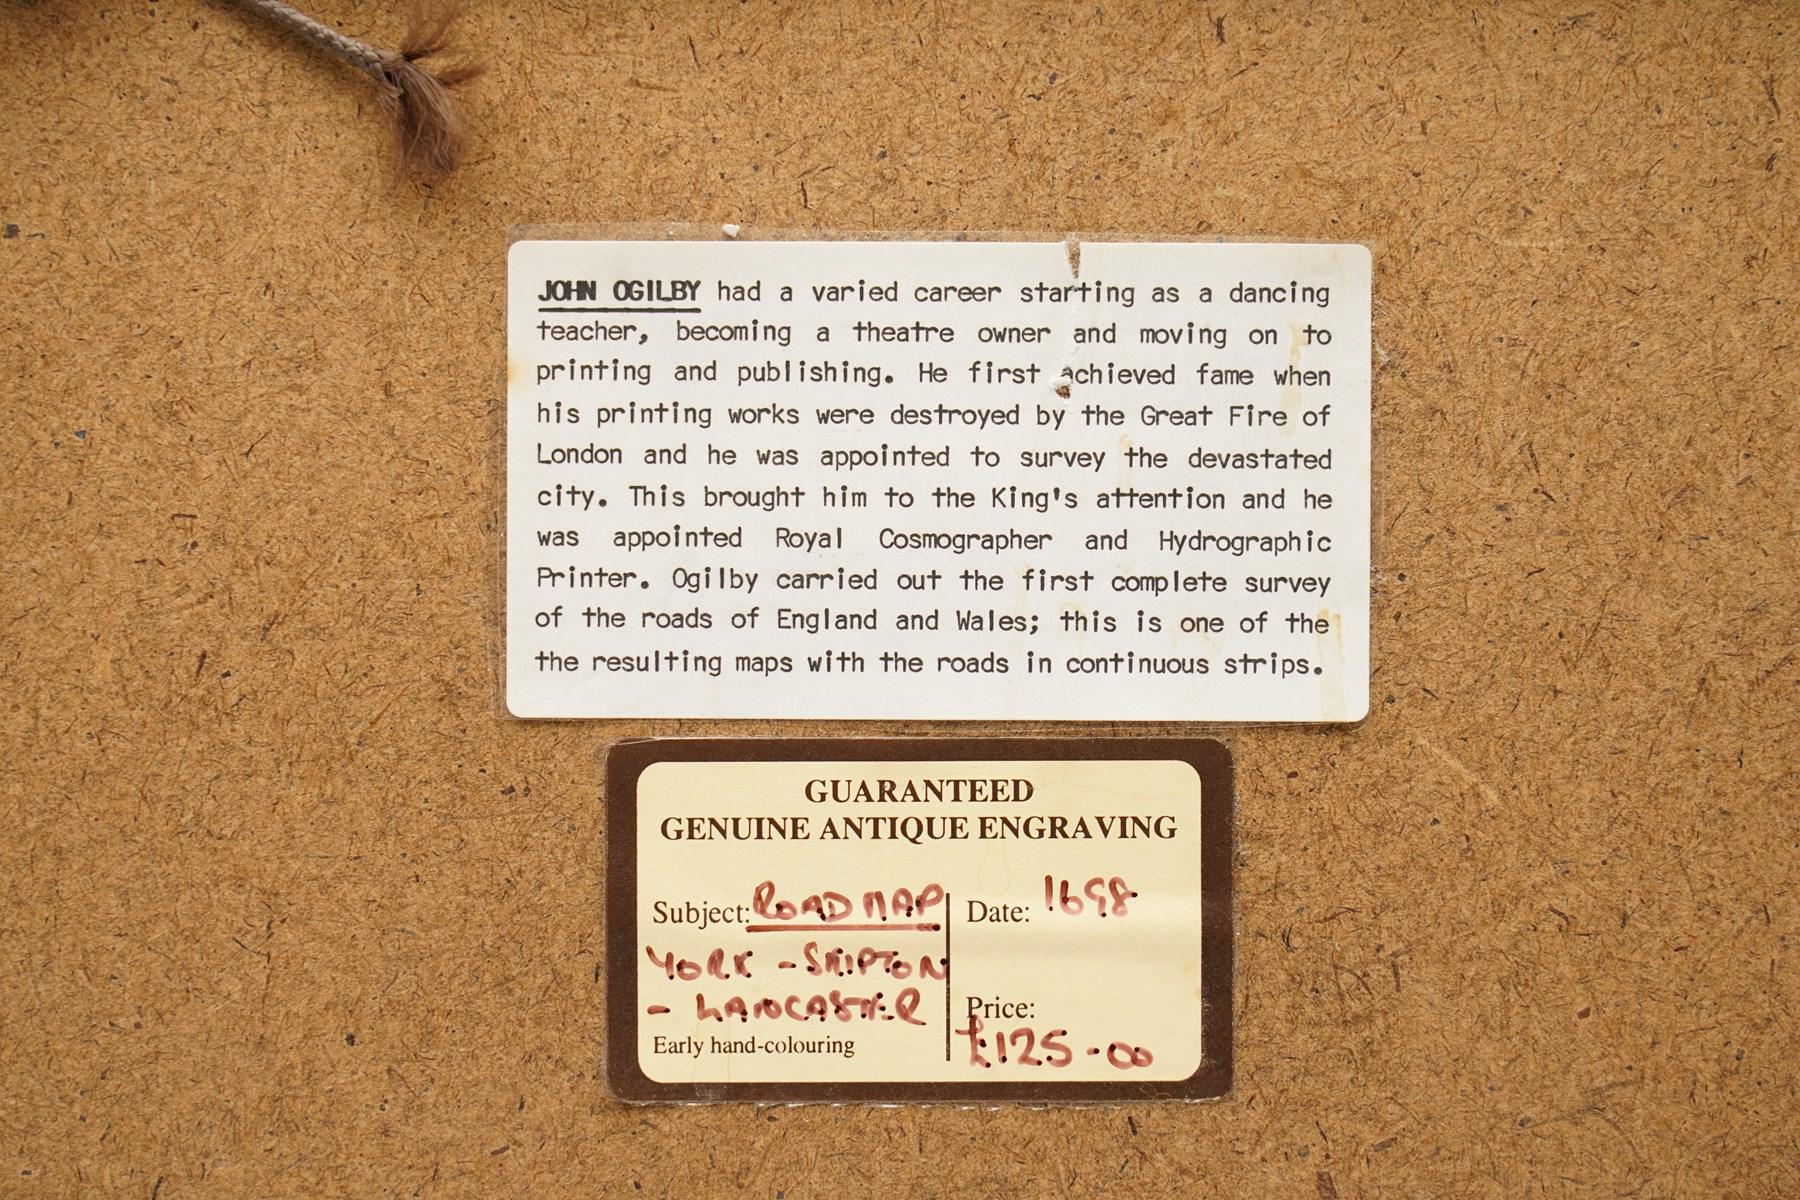 JOHN OGILBY had a varied career starting as a dancing
teacher, becoming a theatre owner and moving on to
printing and publishing. He first achieved fame when
his printing works were destroyed by the Great Fire of
London and he was appointed to survey the devastated
city. This brought him to the King's attention and he
was appointed Royal Cosmographer and Hydrographic
Printer. Ogilby carried out the first complete survey
of the roads of England and Wales; this is one of the
the resulting maps with the roads in continuous strips.
GUARANTEED
GENUINE ANTIQUE ENGRAVING
Subject: ROAD MAP
YORK - SKIPTON
- LANCASTER
Early hand-colouring
Date: 1698
Price:
£125-00